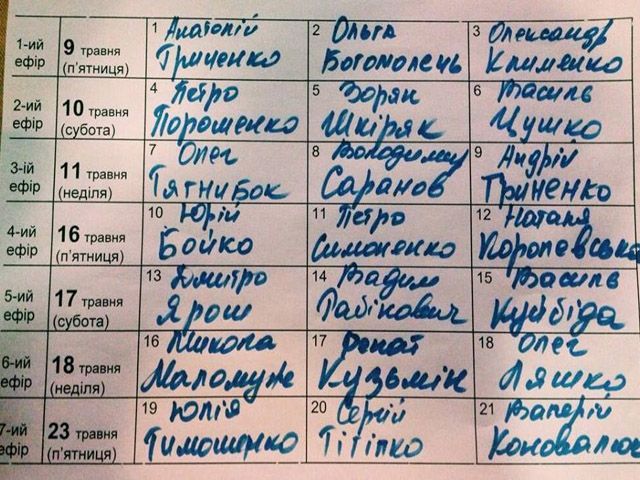 1-ий ефір
9 травня (п'ятниця)
1 Анатолій Гриценко
2 Ольга Богомолець
3 Олександр Клименко
2-ий ефір
10 травня (субота)
4 Петро Порошенко
5 Зорян Шкіряк
6 Василь Цушко
3-ій ефір
11 травня (неділя)
7 Олег Тягнибок
8 Володимир Саранов
9 Андрій Гриненко
4-ий ефір
16 травня (п'ятниця)
10 Юрій Бойко
11 Петро Симоненко
12 Наталя Королевська
5-ий ефір
17 травня (субота)
13 Дмитро Ярош
14 Вадим Рабінович
15 Василь Куйбіда
6-ий ефір
18 травня (неділя)
16 Микола Маломуж
17 Ренат Кузьмін
18 Олег Ляшко
7-ий ефір
23 травня (п'ятниця)
19 Юлія Тимошенко
20 Сергій Тігіпко
21 Валерій Коновалюк